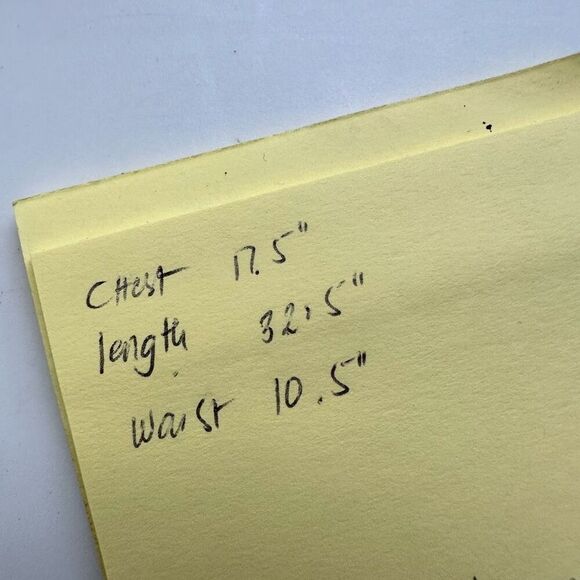 CHest 17.5"
length 32.5"
Waist 10.5"